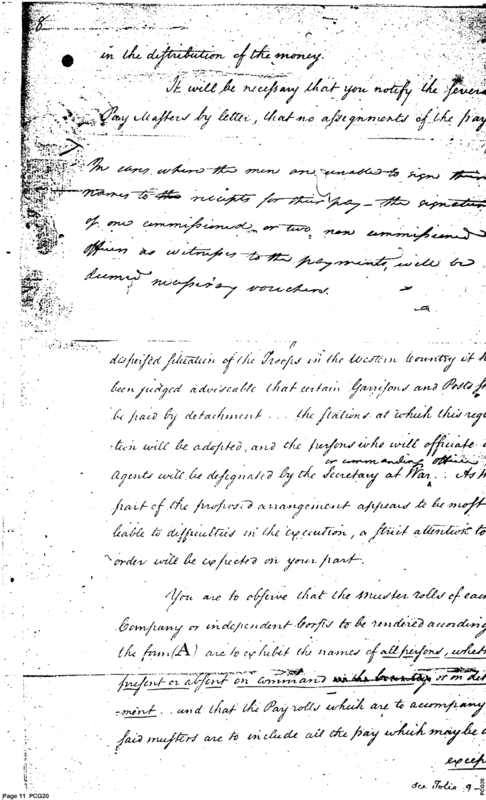 8
in the distribution of the money.
It will be necessary that you notify the Severa
Pay Masters by letter, that no assignments of the pay
In cases where the men are unable to sign their
names to the reciepts for their pay - the signature
of one commissioned, or two, non commissioned
officers as witnesses to the payments, will be
deemed necessary vouchers.
dispersed situation of the Troops in the Western Country it h
been judged adviseable that certain Garrisons and Posts
be paid by detachment ... the stations at which this regu
tion will be adopted, and the persons who will officiate
or commanding officer
Agents will be designated by the Secretary at War.. As
part of the proposed arrangement appears to be most
liable to difficulties in the execution, a strict attention to
order will be expected on your part.
You are to observe that the muster rolls of eac
Company or independent Corps to be rendered according
the form (A) are to exhibit the names of all persons, wheth
present or absent on command in the country or on det
ment.. and that the Pay rolls which are to accompany
said musters are to include all the pay which may be
excep
see Folio 9 -
Page 11 PCG20
PCG20